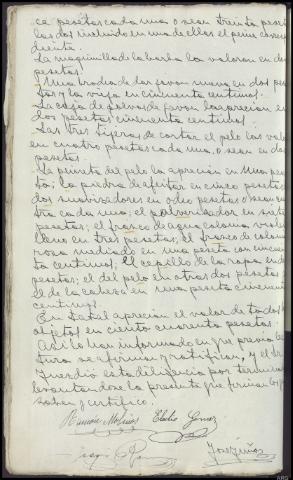 ce pesetas cada una o sean treinta pese
las dos incluido en una de ellas el peine corres
diente.
La maquinilla de la barba la valoran en do
pesetas.
Una brocha de dar javon nueva en dos pes
tas y la vieja en cincuenta centimos.
La caja de polvos de javon la aprecian en
dos pesetas cincuenta centimos.
Las tres tijeras de cortar el pelo las valo
en cuatro pesetas cada una, o sean en do
pesetas.
La peineta del pelo la aprecian en una pese
ta; la piedra de afeitar en cinco pesetas
dos suavizadores en ocho pesetas o sean
tro cada uno; el pulverizador en siete
pesetas; el frasco de agua colonia viole
lleno en tres pesetas; el frasco de colonia
rosa mediado en una peseta con cincuen
ta centimos; el cepillo de la ropa en do
pesetas; el del pelo en otras dos pesetas
el de la cabeza en una peseta cincuenta
centimos.
En total aprecian el valor de todos lo
objetos en ciento cuarenta pesetas.
Asi lo han informado en que previa lec
tura se afirman y ratifican, y el Sr.
Juez dió esta diligencia por terminada
levantandose la presente que firman los q
saben y certifico.
Ramón Molinos Eladio Gomez
José Muñoz
ARG